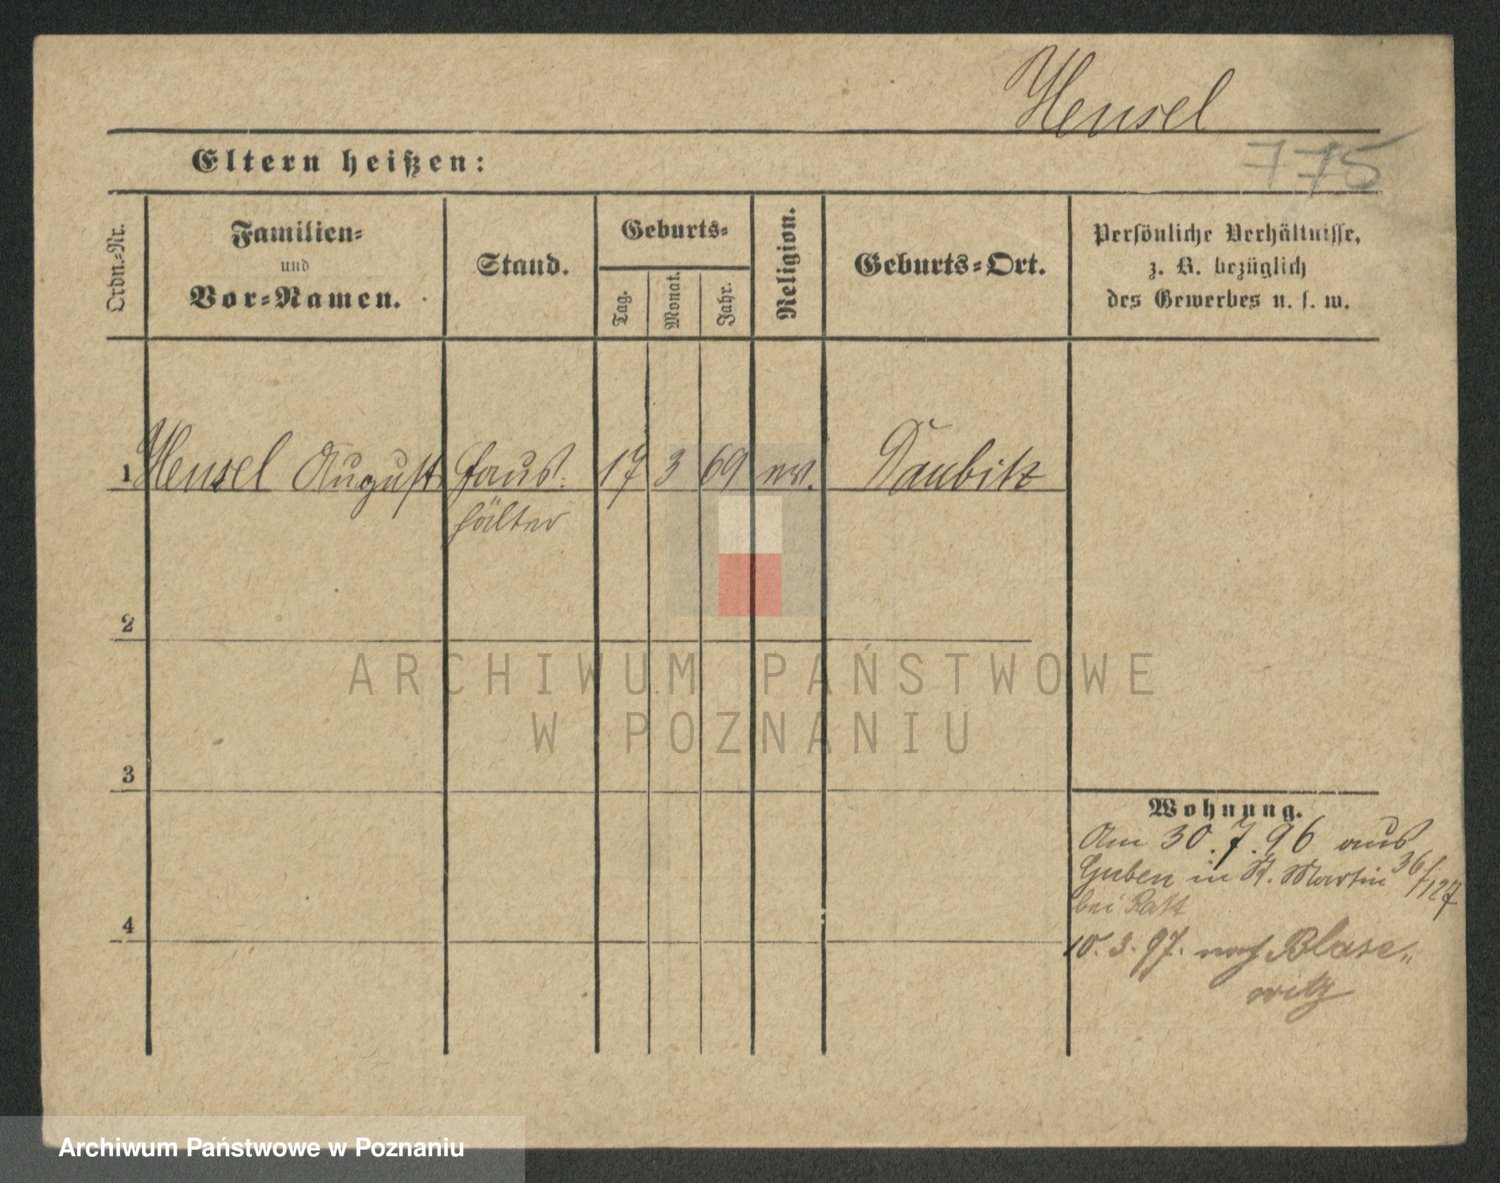 Hensel
775
Eltern heißen:
Ordn.-Nr.
Familien-
und
Vor-Namen.
Stand.
Geburts-
Tag.
Monat.
Jahr.
Religion.
Geburts-Ort.
Persönliche Verhältnisse,
z. B. bezüglich
des Gewerbes u. s. w.
1 Hensel August Haus- 17 3 69 ev. Daubitz
hälter
2
3
4
Wohnung.
Am 30.7.96 aus
Guben in St. Martin 36/127
bei
10.3.97. nach Blase-
witz
ARCHIWUM PAŃSTWOWE
W POZNANIU
Archiwum Państwowe w Poznaniu